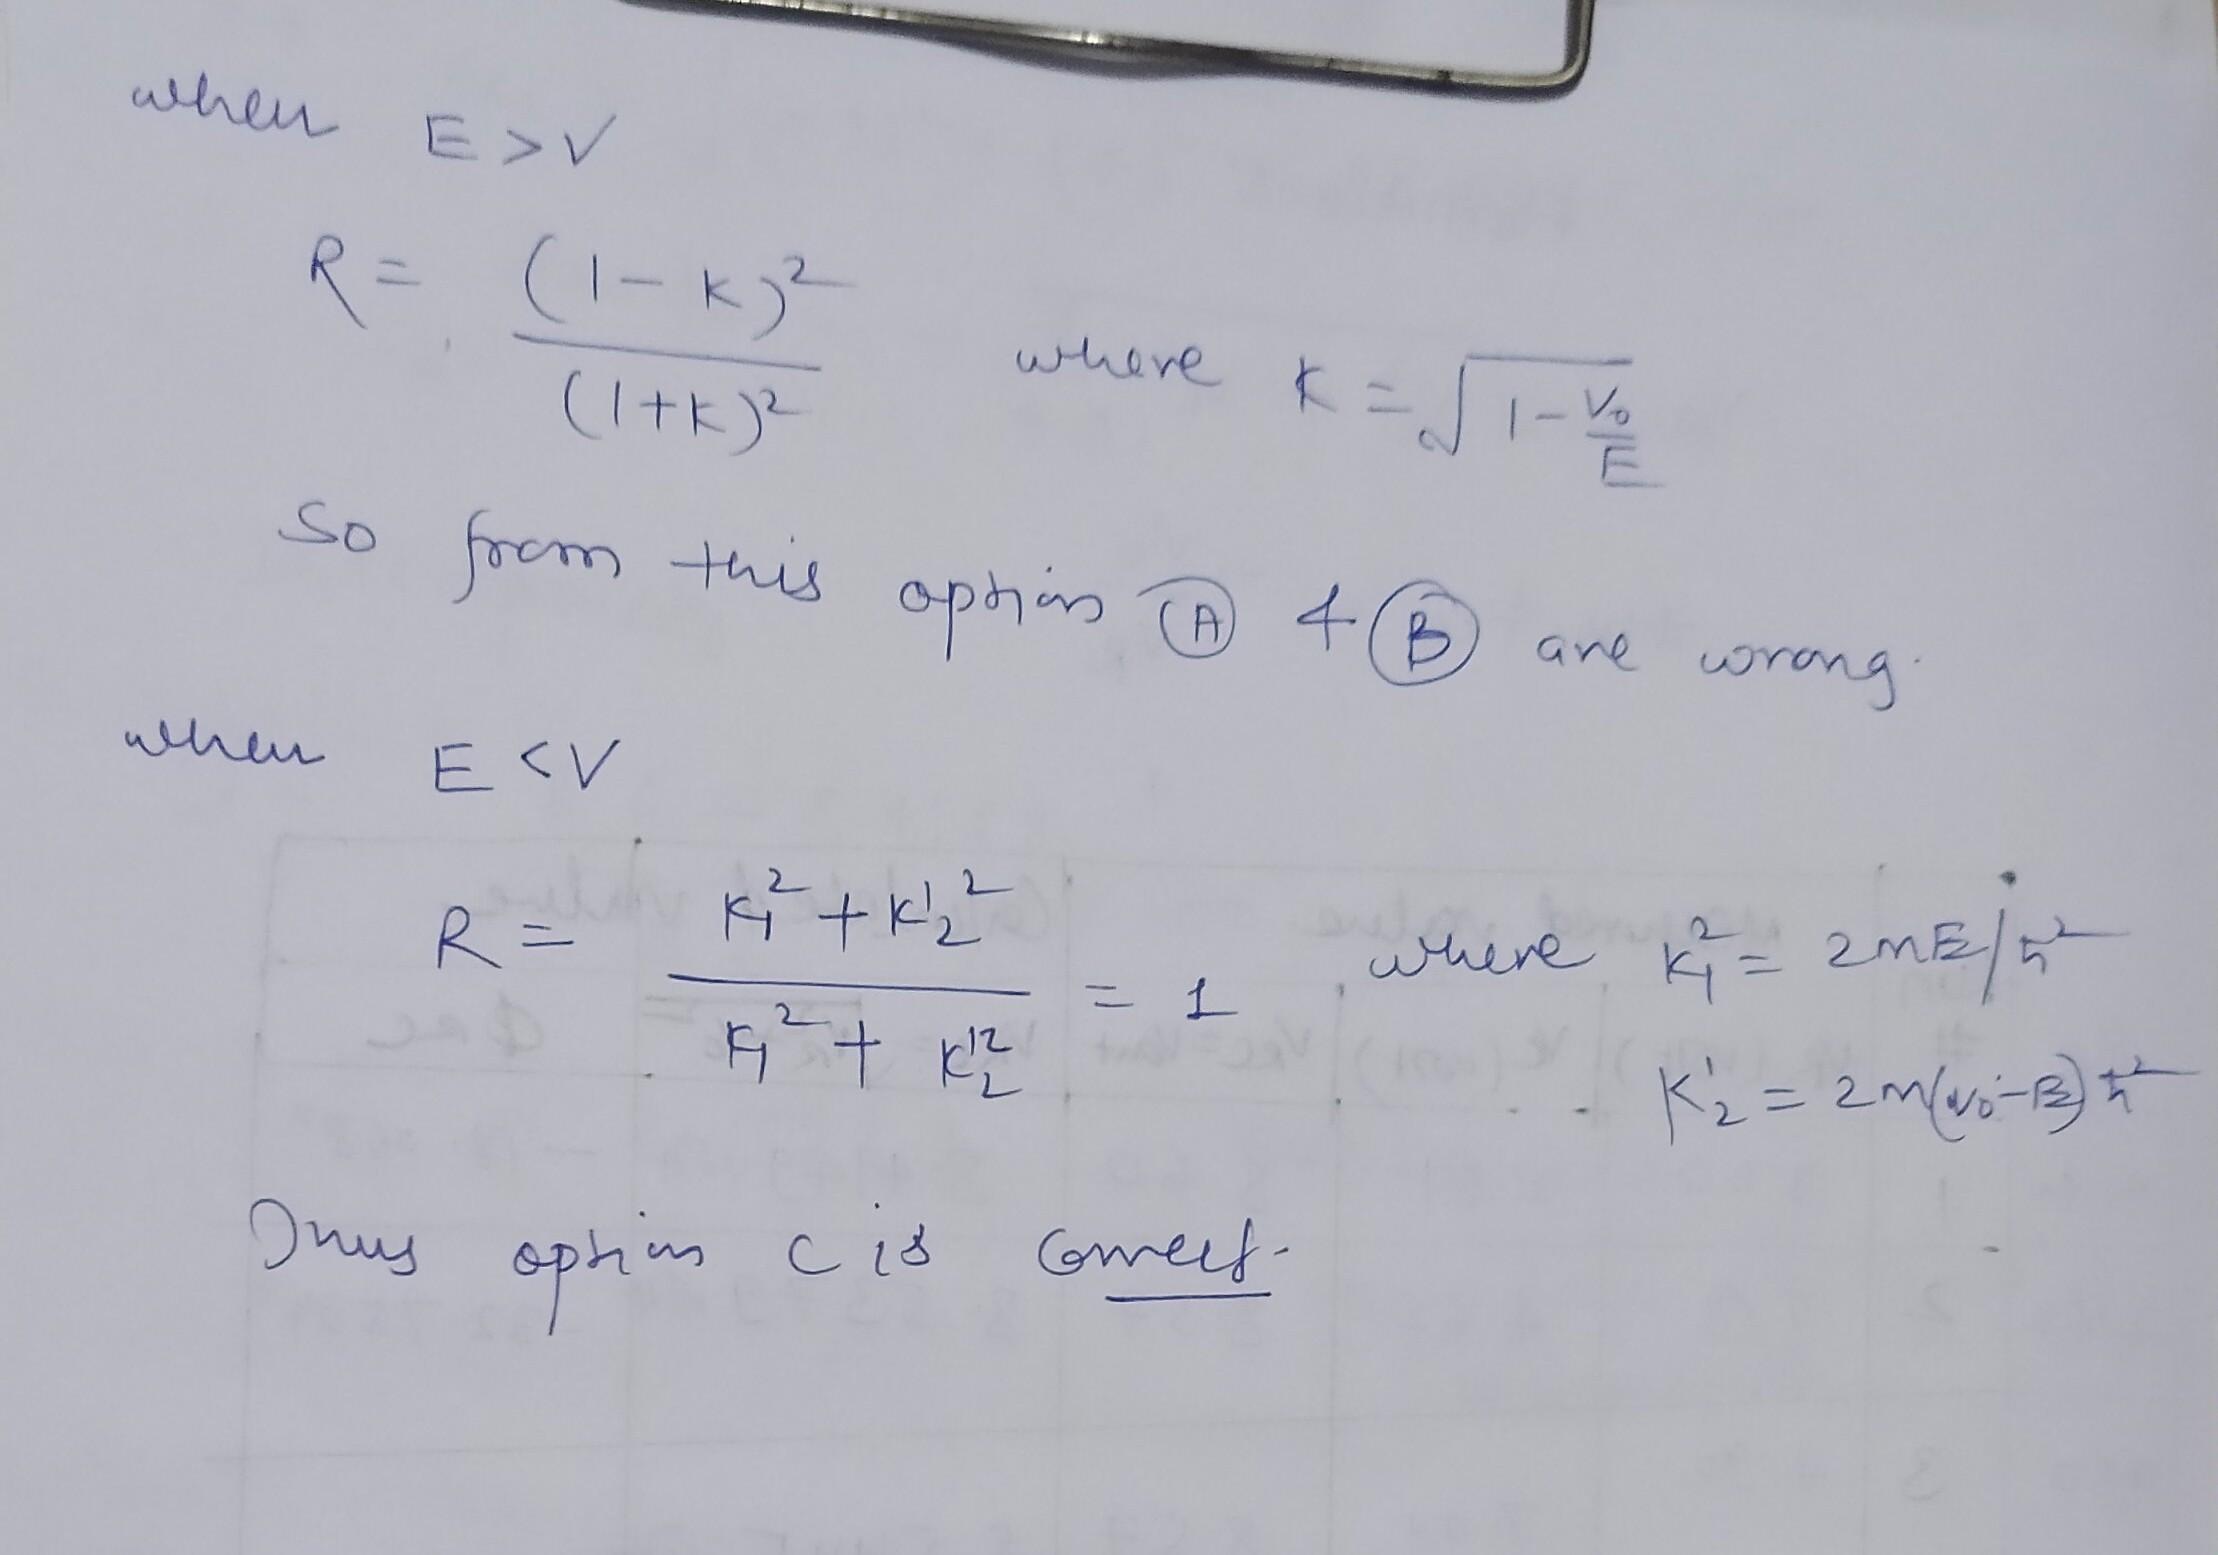 when E > V
R = (1 - K)² / (1+K)² where K = √(1 - V₀/E)
So from this option Ⓐ & Ⓑ are wrong.
when E < V
R = (K₁² + K'₂²) / (K₁² + K'₂²) = 1 where K₁² = 2mE/ħ²
K'₂ = 2m(V₀-E) ħ²
Thus option C is correct.